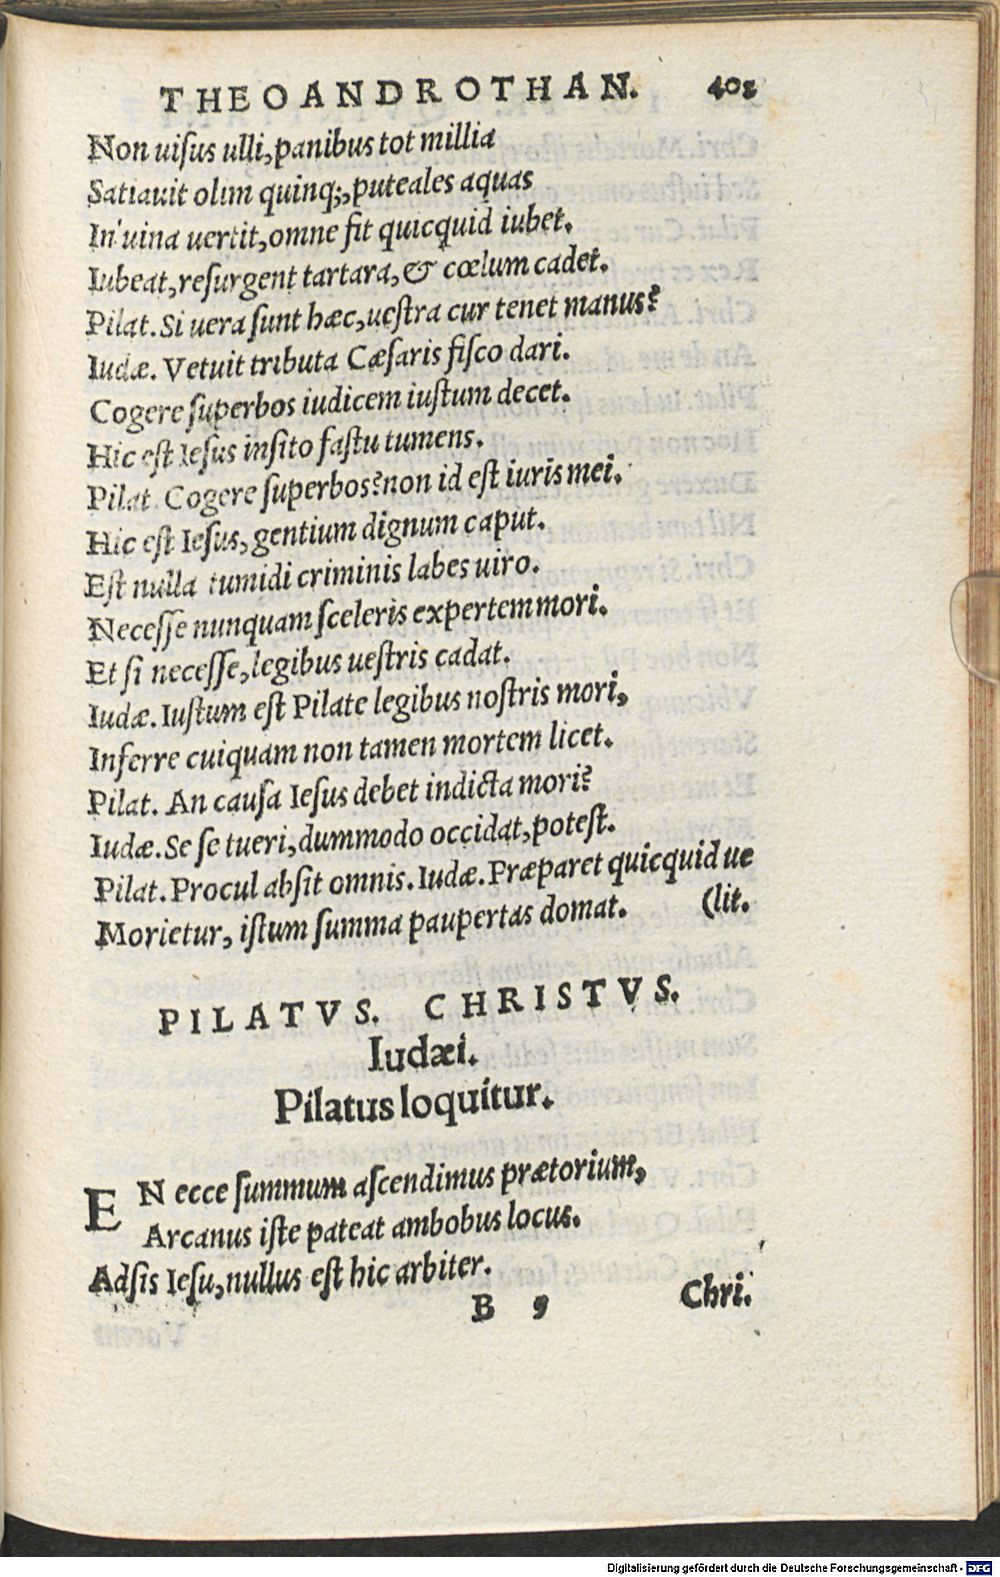 THEOANDROTHAN. 402
Non uiſus ulli, panibus tot millia
Satiauit olim quinq;, puteales aquas
In uina uertit, omne fit quicquid iubet.
Iubeat, reſurgent tartara, & cœlum cadet.
Pilat. Si uera ſunt hæc, ueſtra cur tenet manus?
Iudæ. Vetuit tributa Cæſaris fiſco dari.
Cogere ſuperbos iudicem iuſtum decet.
Hic eſt Ieſus inſito faſtu tumens.
Pilat. Cogere ſuperbos? non id eſt iuris mei.
Hic eſt Ieſus, gentium dignum caput.
Eſt nulla tumidi criminis labes uiro.
Neceſſe nunquam ſceleris expertem mori.
Et ſi neceſſe, legibus ueſtris cadat.
Iudæ. Iuſtum eſt Pilate legibus noſtris mori,
Inferre cuiquam non tamen mortem licet.
Pilat. An cauſa Ieſus debet indicta mori?
Iudæ. Se ſe tueri, dummodo occidat, poteſt.
Pilat. Procul abſit omnis. Iudæ. Præparet quicquid ue
Morietur, iſtum ſumma paupertas domat. (lit.
PILATVS. CHRISTVS.
Iudæi.
Pilatus loquitur.
EN ecce ſummum aſcendimus prætorium,
Arcanus iſte pateat ambobus locus.
Adſis Ieſu, nullus eſt hic arbiter.
B 9 Chri.
Digitalisierung gefördert durch die Deutsche Forschungsgemeinschaft - DFG